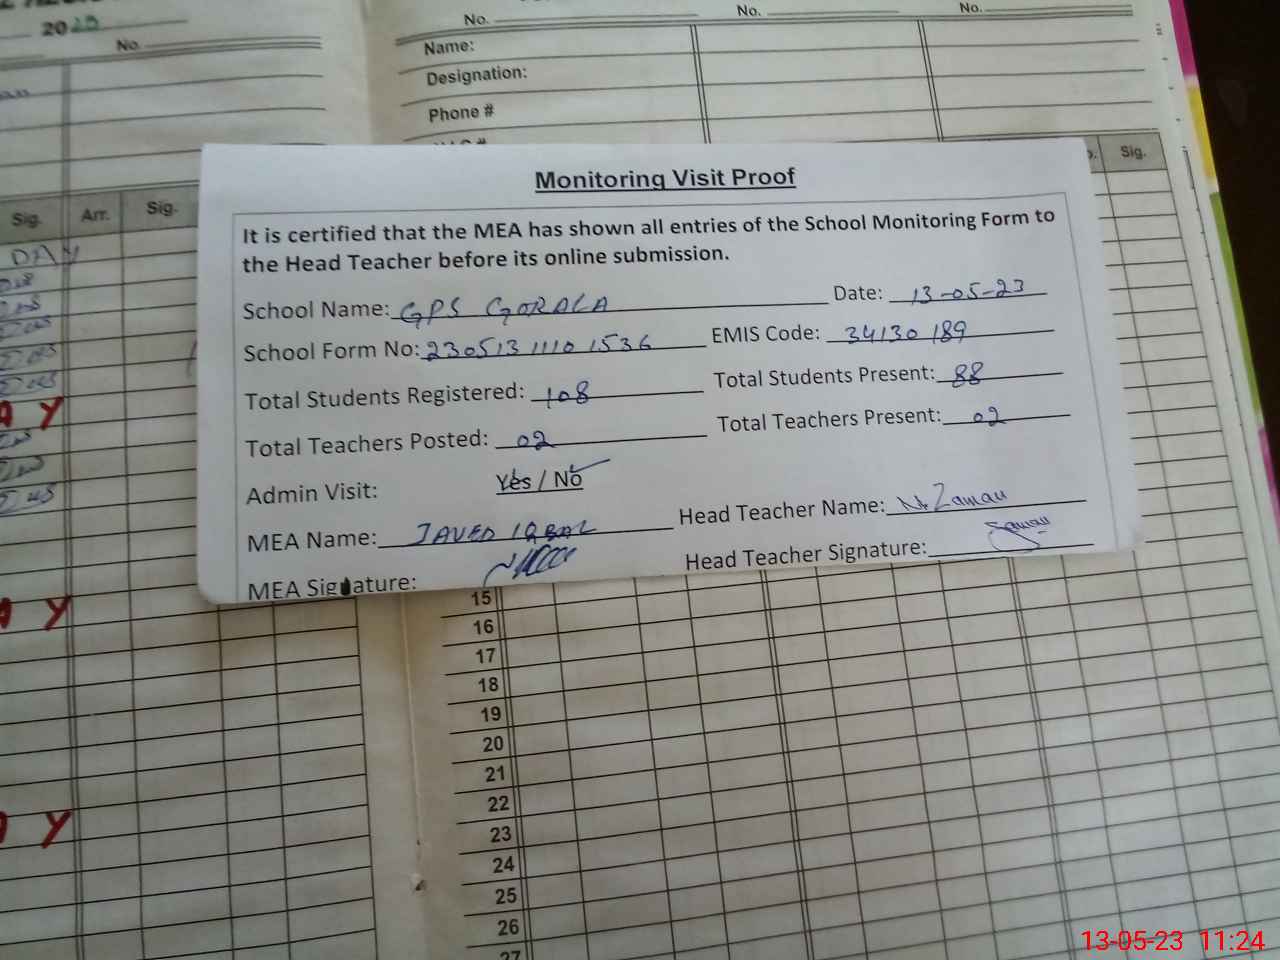 2023
No.
Sig. Arr. Sig.
DAY
A Y
A Y
A Y
No. No. No.
Name:
Designation:
Phone #
Sig.
Monitoring Visit Proof
It is certified that the MEA has shown all entries of the School Monitoring Form to
the Head Teacher before its online submission.
School Name: GPS GORALA Date: 13-05-23
School Form No: 230513 1110 1536 EMIS Code: 34130189
Total Students Registered: 108 Total Students Present: 88
Total Teachers Posted: 02 Total Teachers Present: 02
Admin Visit: Yes / No
MEA Name: JAVED IQBAL Head Teacher Name: N. Zaman
MEA Signature: Head Teacher Signature: Zaman
15
16
17
18
19
20
21
22
23
24
25
26
27
13-05-23 11:24